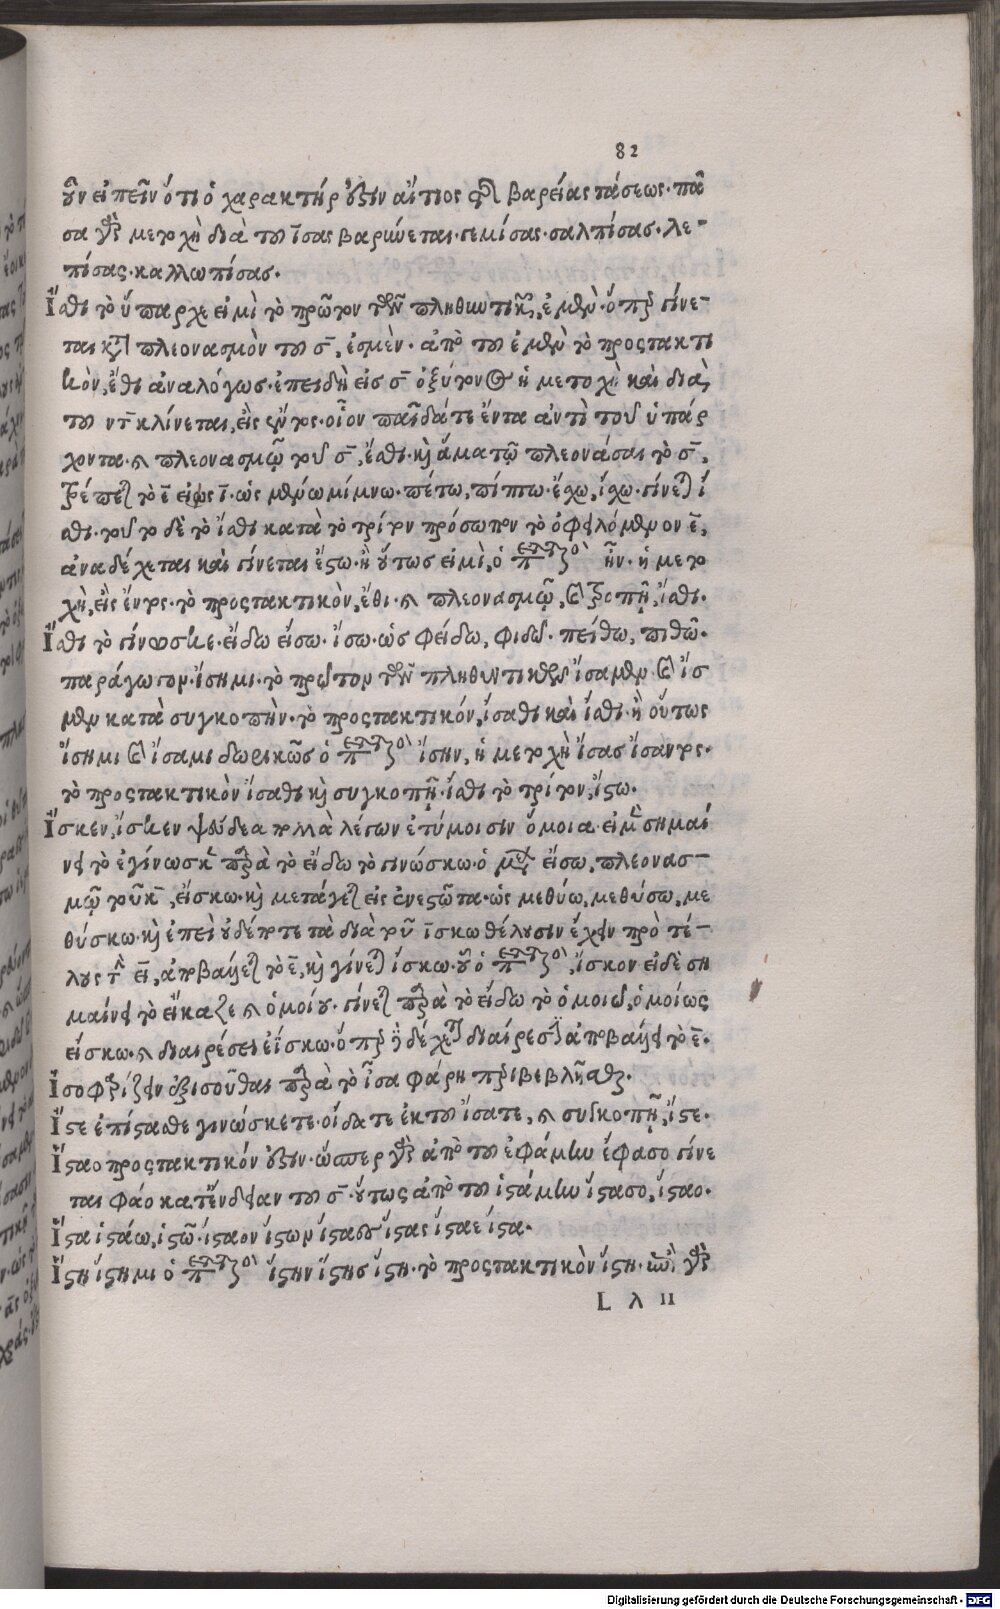 82
οὖν εἰπεῖν ὅτι ὁ χαρακτήρ ἐστιν αἴτιος τῆς βαρείας τάσεως· πᾶ
σα γὰρ μετοχὴ διὰ του ῑσας βαρύνεται· γεμίσας· σαλπίσας· λε-
πίσας· καλλωπίσας.
Ἴσθι τὸ ὕπαρχε εἰμὶ τὸ πρῶτον τῶν πληθυντικῶν, ἐμὲν· ὅπερ γίνε-
ται κατὰ πλεονασμὸν του σ̄, ἐσμὲν· ἀπὸ του ἐμὲν τὸ προστακτι
κὸν, ἔθι ἀναλόγως· ἐπειδὴ εἰσ σ̄ ὀξύτονος ἡ μετοχὴ καὶ διὰ
του ντ̄ κλίνεται, εἲς ἔντος· οἷον παῖδά τε ἔντα ἀντὶ τοῦ ὑπάρ
χοντα· καὶ πλεονασμῷ τοῦ σ̄, ἔσθι· κὴ ἅμα τῷ πλεονάσαι τὸ σ̄,
τρέπει τὸ ε̄ εἰς ῑ· ὡς μένω μίμνω· πέτω, πίπτω· ἔχω, ἴχω· γίνεται ἴ
σθι· τοῦτο δὲ τὸ ἴσθι κατὰ τὸ τρίτον πρόσωπον τὸ ὀφειλόμενον ε̄,
ἀναδέχεται καὶ γίνεται ἔστω· ἢ οὕτως εἰμὶ, ὁ ἦν· ἡ μετο
χὴ, εἲς ἔντος· τὸ προστακτικὸν, ἔθι· καὶ πλεονασμῷ, καὶ τροπῇ, ἴσθι.
Ἴσθι τὸ γίνωσκε· εἴδω εἴσω· ἴσω· ὡσ φείδω, φιδῶ· πείθω, πιθῶ·
παράγωγον· ἴσημι· τὸ πρῶτον τῶν πληθυντικῶν ἴσαμεν καὶ ἴσ
μεν κατὰ συγκοπὴν· τὸ προστακτικόν, ἴσαθι καὶ ἴσθι· ἢ οὕτως
ἴσημι καὶ ἴσαμι δωρικῶσ ὁ ἴσην, ἡ μετοχὴ ἴσασ ἴσαντος·
τὸ προστακτικὸν ἴσαθι κὴ συγκοπῇ· ἴσθι τὸ τρίτον, ἴστω.
Ἴσκεν, ἴσκεν ψεύδεα πολλὰ λέγων ἐτύμοισιν ὅμοια· εἰ μὲν σημαί
νει τὸ ἐγίνωσκε παρὰ τὸ εἴδω τὸ γινώσκω· ὁ μέλλων εἴσω, πλεονασ-
μῷ τοῦ κ̄, εἴσκω· κὴ μετάγεται εἰς ἐνεστῶτα· ὡς μεθύω, μεθύσω, με
θύσκω· κὴ ἐπεὶ οὐδέποτε τὰ διὰ τοῦ ῑσκω θέλουσιν ἔχειν πρὸ τέ-
λους τὴν εῑ, ἀποβάλλει τὸ ε̄, κὴ γίνεται ἴσκω· οὗ ὁ , ἴσκον εἰ δὲ ση
μαίνει τὸ εἴκαζε καὶ ὁμοίου· γίνεται παρὰ τὸ εἴδω τὸ ὁμοιῶ, ὁμοίως
εἴσκω· καὶ διαιρέσει ἐΐσκω· ὅπερ οὐ δέχεται διαίρεσιν ἀποβάλλει τὸ ε̄.
Ἰσοφαρίζειν ἐξισοῦσθαι παρὰ τὸ ἶσα φάρη περιβεβλῆσθαι.
Ἴστε ἐπίστασθε γινώσκετε· οἴδατε ἐκ του ἴσατε, καὶ συγκοπῇ, ἴστε.
Ἵσταο προστακτικόν ἐστιν· ὥσπερ γὰρ ἀπὸ του ἐφάμην ἔφασο γίνε
ται φάο κατ' ἔνδειαν του σ̄· οὕτως ἀπὸ του ἱστάμην ἵστασο, ἵσταο.
Ἵστα ἱστάω, ἱστῶ· ἵσταον ἵστων ἵσταου ἵσταες ἵσταε ἵστα.
Ἵστη ἵστημι ὁ ἵστην ἵστησ ἵστη· τὸ προστακτικὸν ἵστη· γὰρ
L λ II
Digitalisierung gefördert durch die Deutsche Forschungsgemeinschaft - DFG